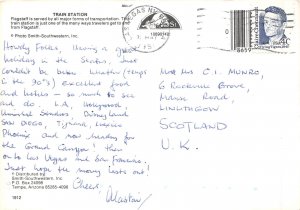 TRAIN STATION
Flagstaff is served by all major forms of transportation. The
train station is just one of the many ways travelers arrive
from Flagstaff.
© Photo Smith-Southwestern, Inc.
Howdy Folks, Having a great
holiday in the States, just
couldn't be better. Weather (temps
in the 90's) excellent food
and hotels - so much to see
and do. L.A. Hollywood
Universal Studios, Disneyland
San Diego, Tijuana, Mexico
Phoenix and now heading for
the Grand Canyon! Then
on to Las Vegas and San Francisco.
Just hope the money lasts out!
Cheers,
Alastair
© Distributed by
Smith-Southwestern, Inc.
P.O. Box 24098
Tempe, Arizona 85285-4098
1912
LAS VEGAS NV
MR & MRS C.I. MUNRO,
6 ROAD,
LINLITHGOW
SCOTLAND
U.K.